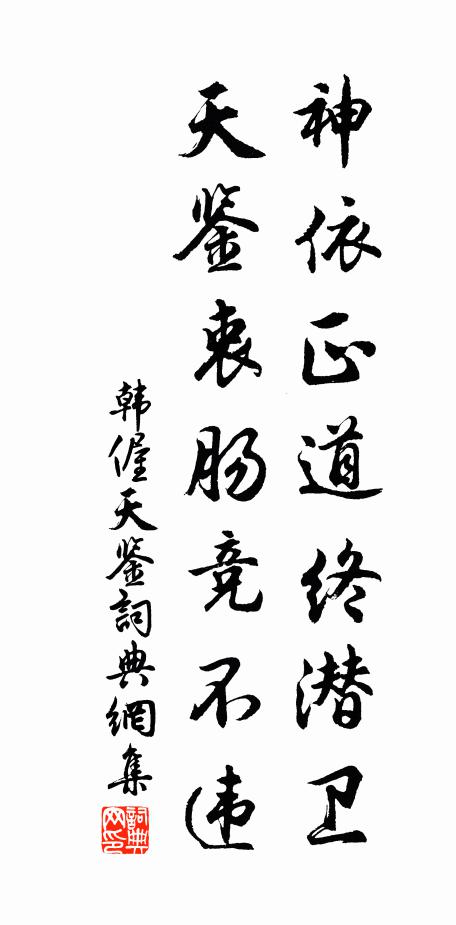 神依正道终潜卫
天鉴衷肠竞不违
韩偓天鉴詞典網集
詞典网印